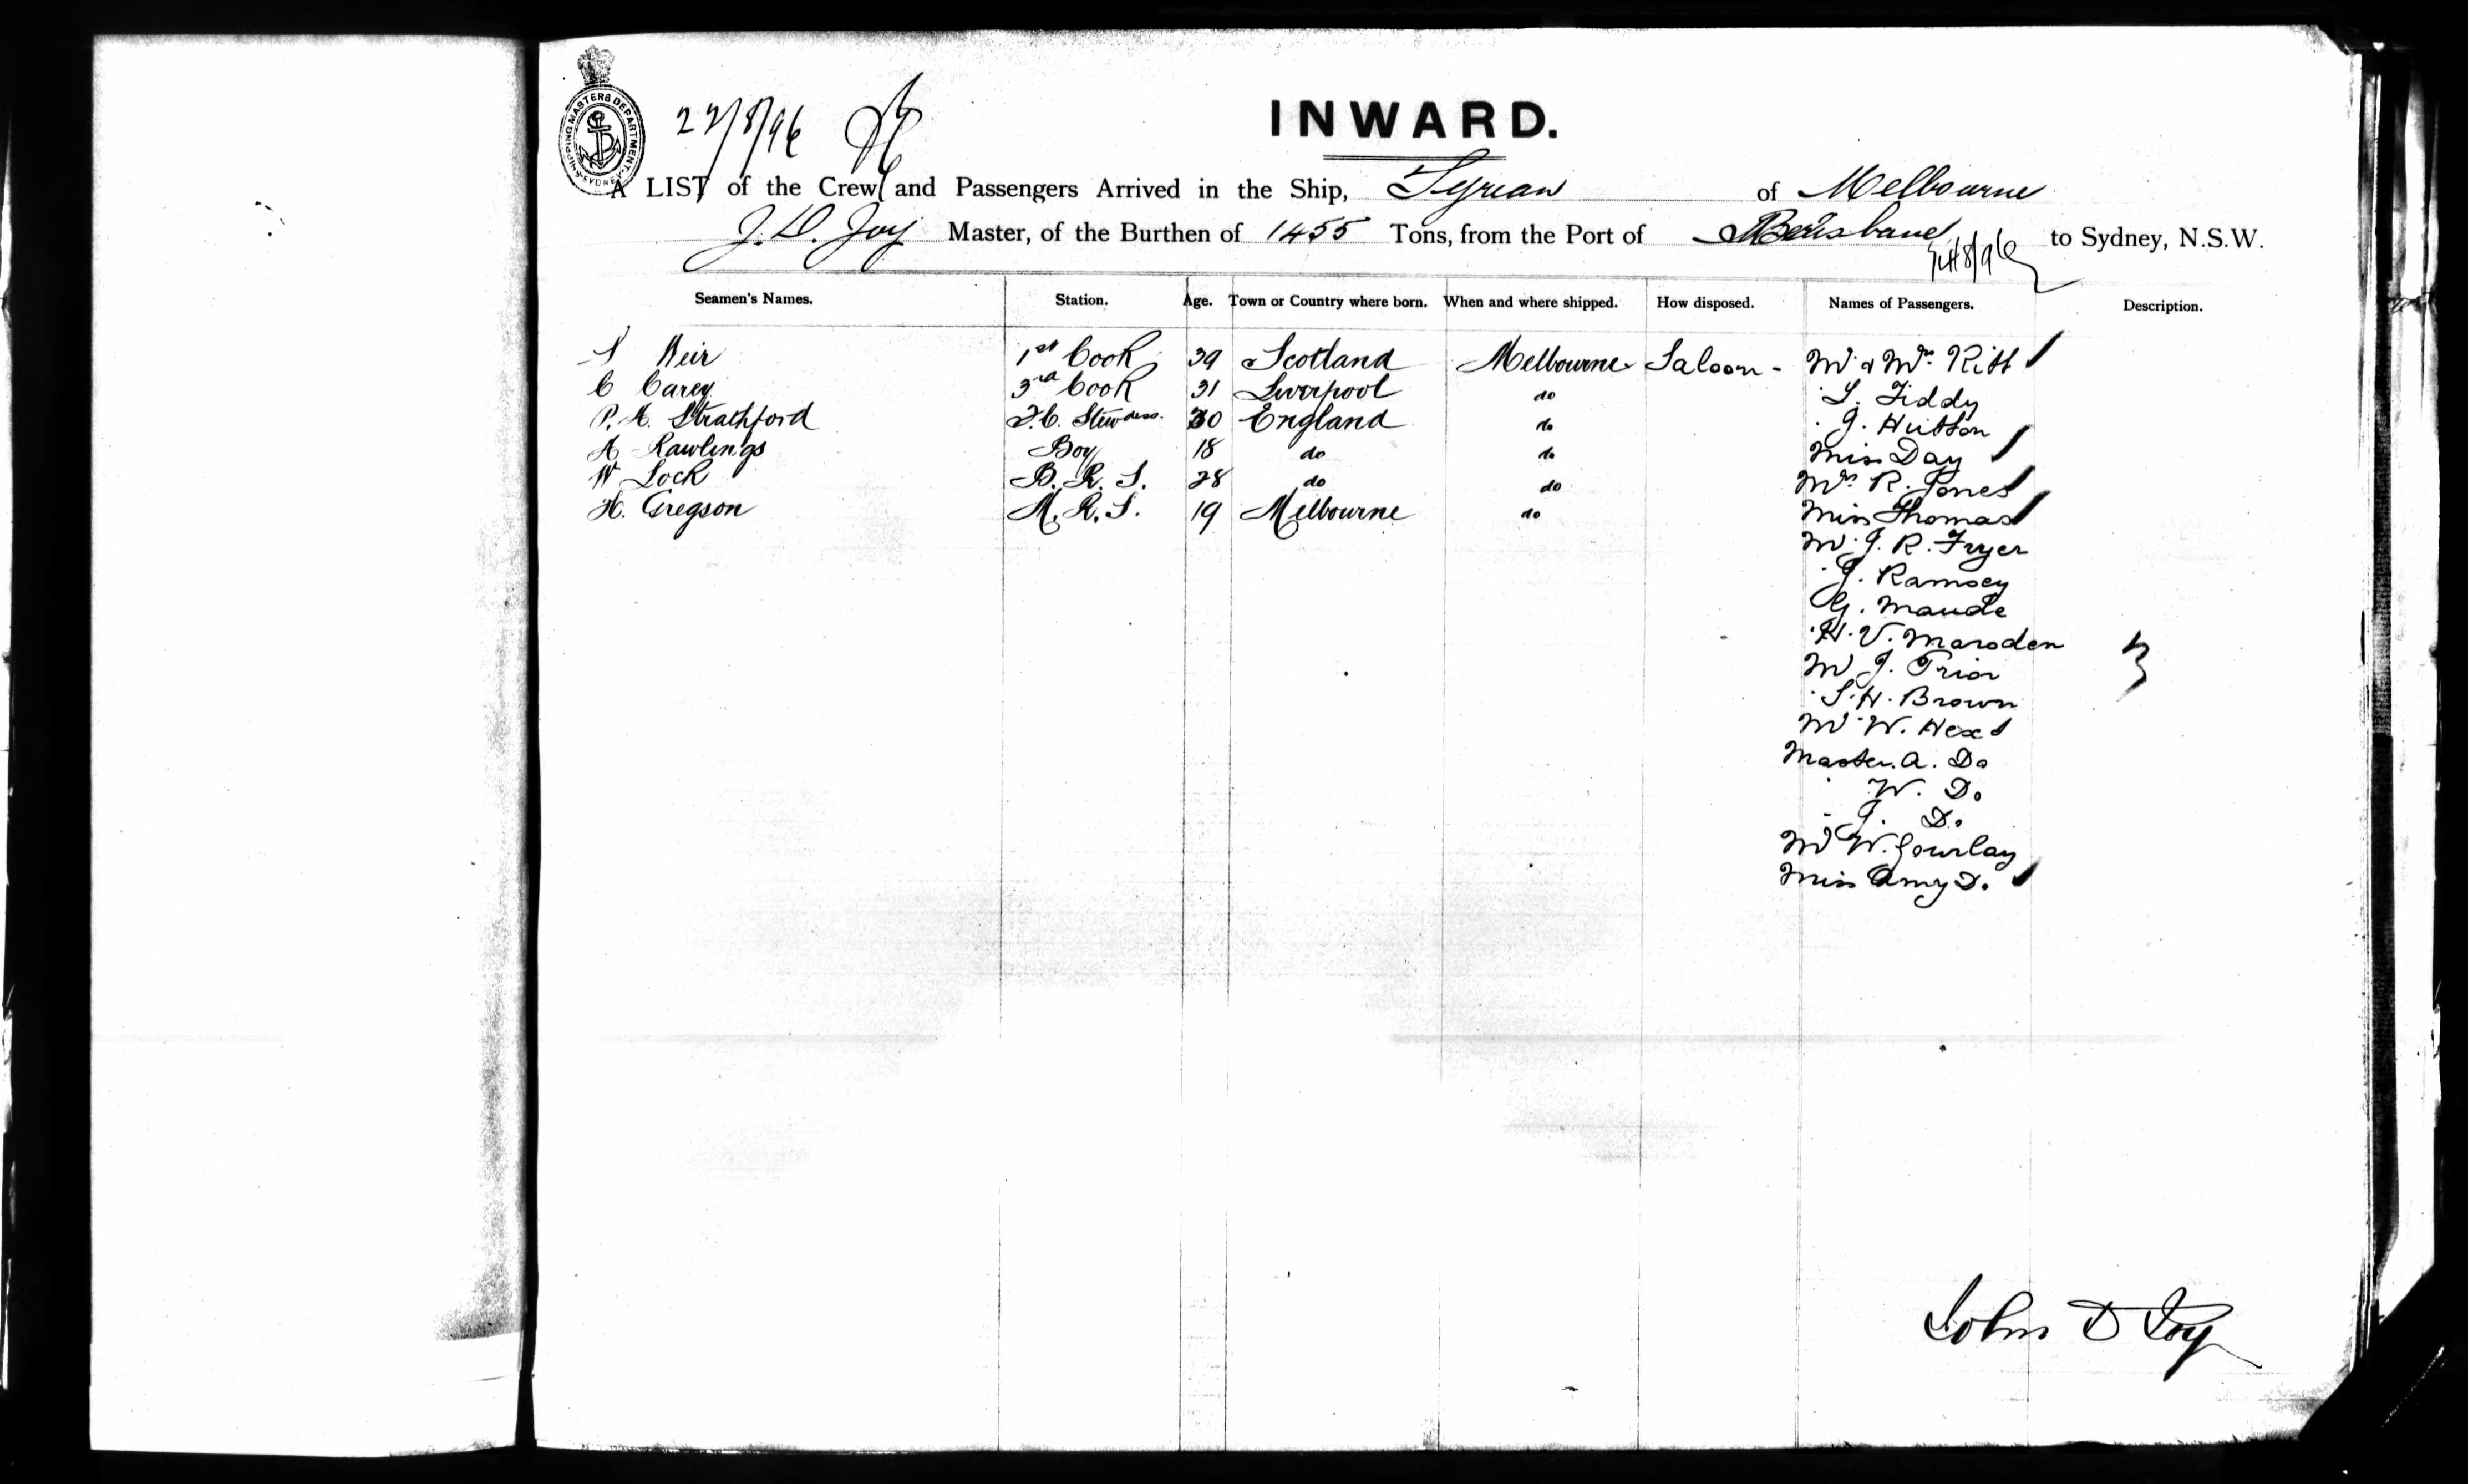 SHIPPING MASTERS DEPARTMENT SYDNEY
22/8/96
INWARD.
A LIST of the Crew and Passengers Arrived in the Ship, Tyrian of Melbourne
J. D. Joy Master, of the Burthen of 1455 Tons, from the Port of Brisbane to Sydney, N.S.W.
Seamen's Names. Station. Age. Town or Country where born. When and where shipped. How disposed. Names of Passengers. Description.
Weir 1st Cook 39 Scotland Melbourne Saloon - Mr & Mrs Kitt
C Carey 3rd Cook 31 Liverpool do L. Fiddy
P. A. Strathford F.C. Stewdess. 30 England do J. Hutton
A Rawlings Boy 18 do do Miss Day
W Lock B. R. S. 28 do do Mrs R. Jones
H. Gregson M. R. S. 19 Melbourne do Miss Thomas
Mr J. R. Fryer
J. Ramsey
G. Maude
H. V. Marsden
Mr J. Prior
S. H. Brown
Mr W. Hext
Master. A. Do
W. Do
J. Do
Mr W. Gourlay
Miss Amy Do
John D Joy